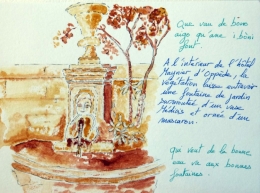 Que van de bòno
aigo qu'ame i bòni
font
A l'intérieur de l'hôtel
Maynier d'Oppède, la
végétation laisse entrevoir
une fontaine de jardin
surmontée d'un vase
Médicis et ornée d'un
mascaron.
que vent de la bonne
eau va aux bonnes
fontaines.